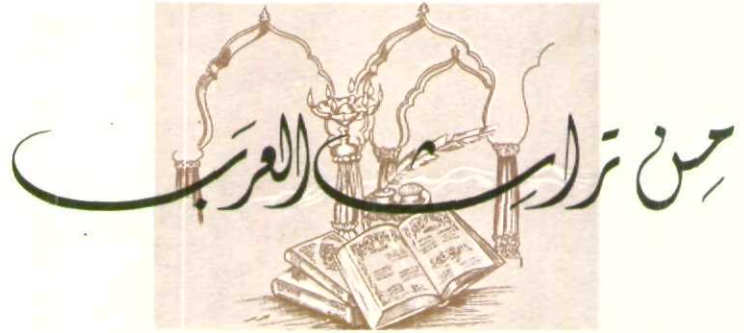 من تراث العرب